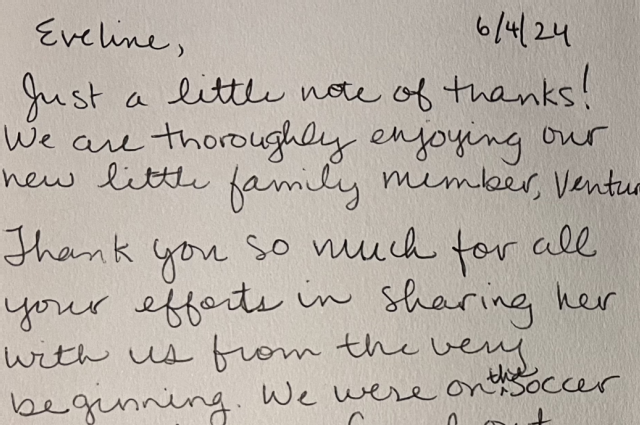 Eveline, 6/4/24
Just a little note of thanks!
We are thoroughly enjoying our
new little family member, Ventur
Thank you so much for all
your efforts in sharing her
with us from the very
beginning. We were on the soccer